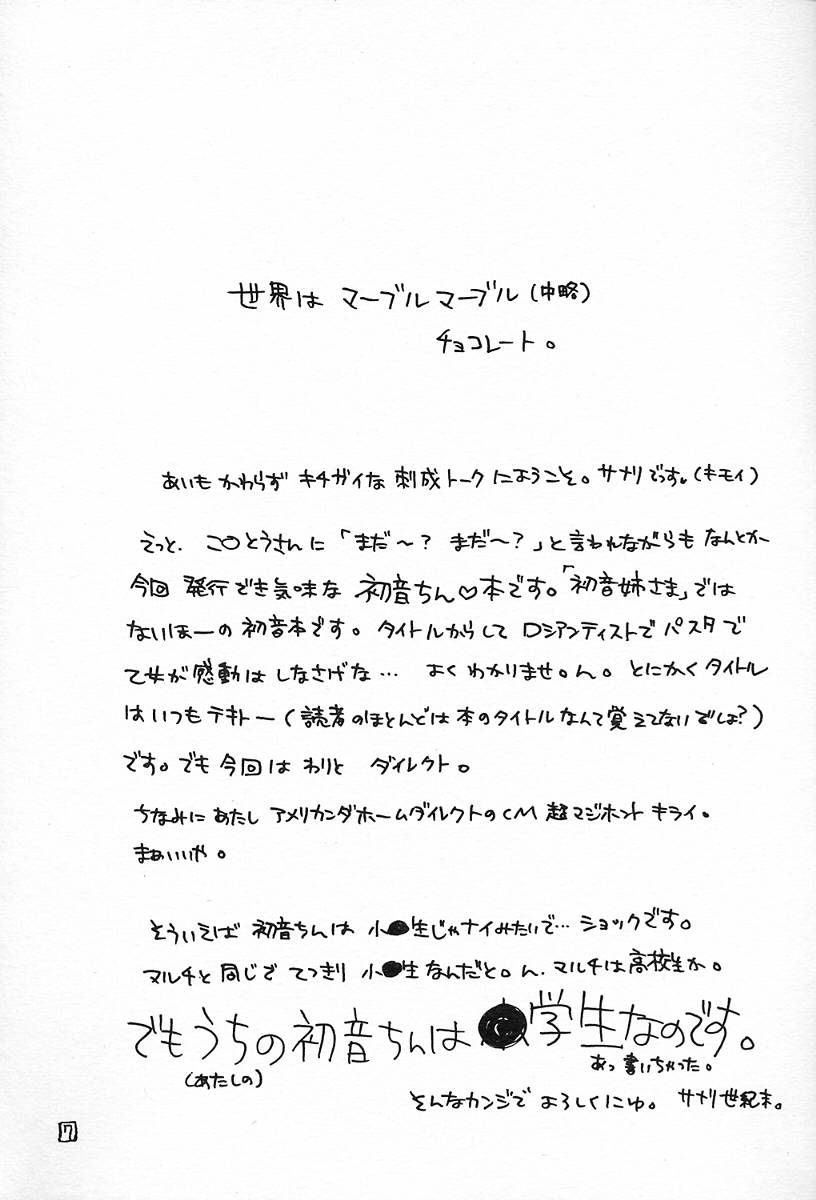 世界は マーブルマーブル(中略)
チョコレート。
あいもかわらず キチガイな 刺成トークにようこそ。サナリでっす。(キモイ)
えっと、この○とうさんに「まだ〜? まだ〜?」と言われながらも なんとか
今回 発行でき気味な 初音ちん♡本です。「初音姉さま」では
ないほーの初音本です。タイトルからして ロシアンティストで パスタで
乙女が感動は しなさげな… よく わかりませ。ん。とにかくタイトル
はいつもテキトー(読者のほとんどは本のタイトルなんて覚えてないでしょ?)
です。でも今回は わりと ダイレクト。
ちなみに あたし アメリカンダホームダイレクトのCM 超マジホント キライ。
まぁいいや。
そういえば 初音ちんは 小●生じゃナイみたいで… ショックです。
マルチと同じで てっきり 小●生なんだと。ん、マルチは高校生か。
でもうちの初音ちんは ●学生なのです。
(あたしの)
あっ 書いちゃった。
そんなカンジで よろしくにゅ。 サナリ世紀末。
7